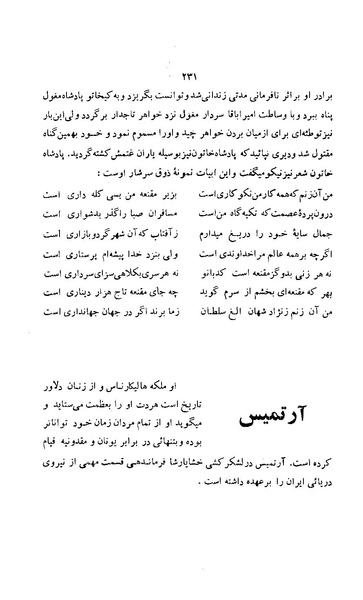 ۲۳۱
برادر او براثر نافرمانی مدتی زندانی شد و توانست بگریزد و به کیخاتو پادشاه مغول
پناه ببرد وبا وساطت امیراباقا سردار مغول نزد خواهر تاجدار برگردد ولی این بار
نیز توطئه‌ای برای ازمیان بردن خواهر چید واورا مسموم نمود و خسود بهمین گناه
مقتول شد ودیری نپائید که پادشاه خاتون نیز بوسیله یاران غتمش کشته گردید. پادشاه
خاتون شعر نیز نیکو میگفت و این ابیات نمونهٔ ذوق سرشار اوست :
من آن زنم که همه کار من نکوکاری است بزیر مقنعه من بسی کله داری است
درون پردهٔ عصمت که تکیه گاه من است مسافران صبا راگذر بدشواری است
جمال سایهٔ خود را دریخ میدارم ز آفتاب که آن شهرگرد وبازاری است
اگرچه برهمه عالم مراخداوندی است ولی بنزد خدا پیشه‌ام پرستاری است
نه هر زنی بدوگز مقنعه است کدبانو نه هرسری بکلاهی سزای سرداری است
بهر که مقنعه‌ای بخشم از سرم گوید چه جای مقنعه تاج هزار دیناری است
من آن زنم زنژاد شهان الغ سلطان زما برند اگر در جهان جهانداری است
آرتمیس
او ملکه هالیکارناس و از زنان دلاور
تاریخ است هردت او را بعظمت می‌ستاید و
میگوید او از تمام مردان زمان خود تواناتر
بوده وبتنهائی در برابر یونان و مقدونیه قیام
کرده است. آرتمیس در لشکرکشی خشایارشا فرماندهی قسمت مهمی از نیروی
دریائی ایران را برعهده داشته است .